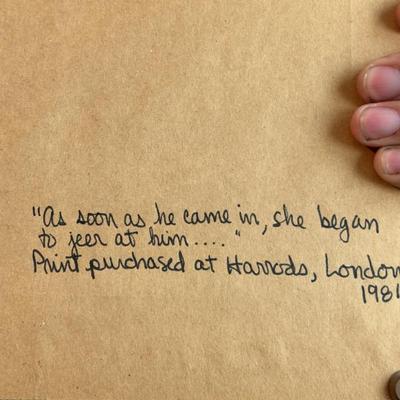 "As soon as he came in, she began
to jeer at him...."
Print purchased at Harrods, London
1981